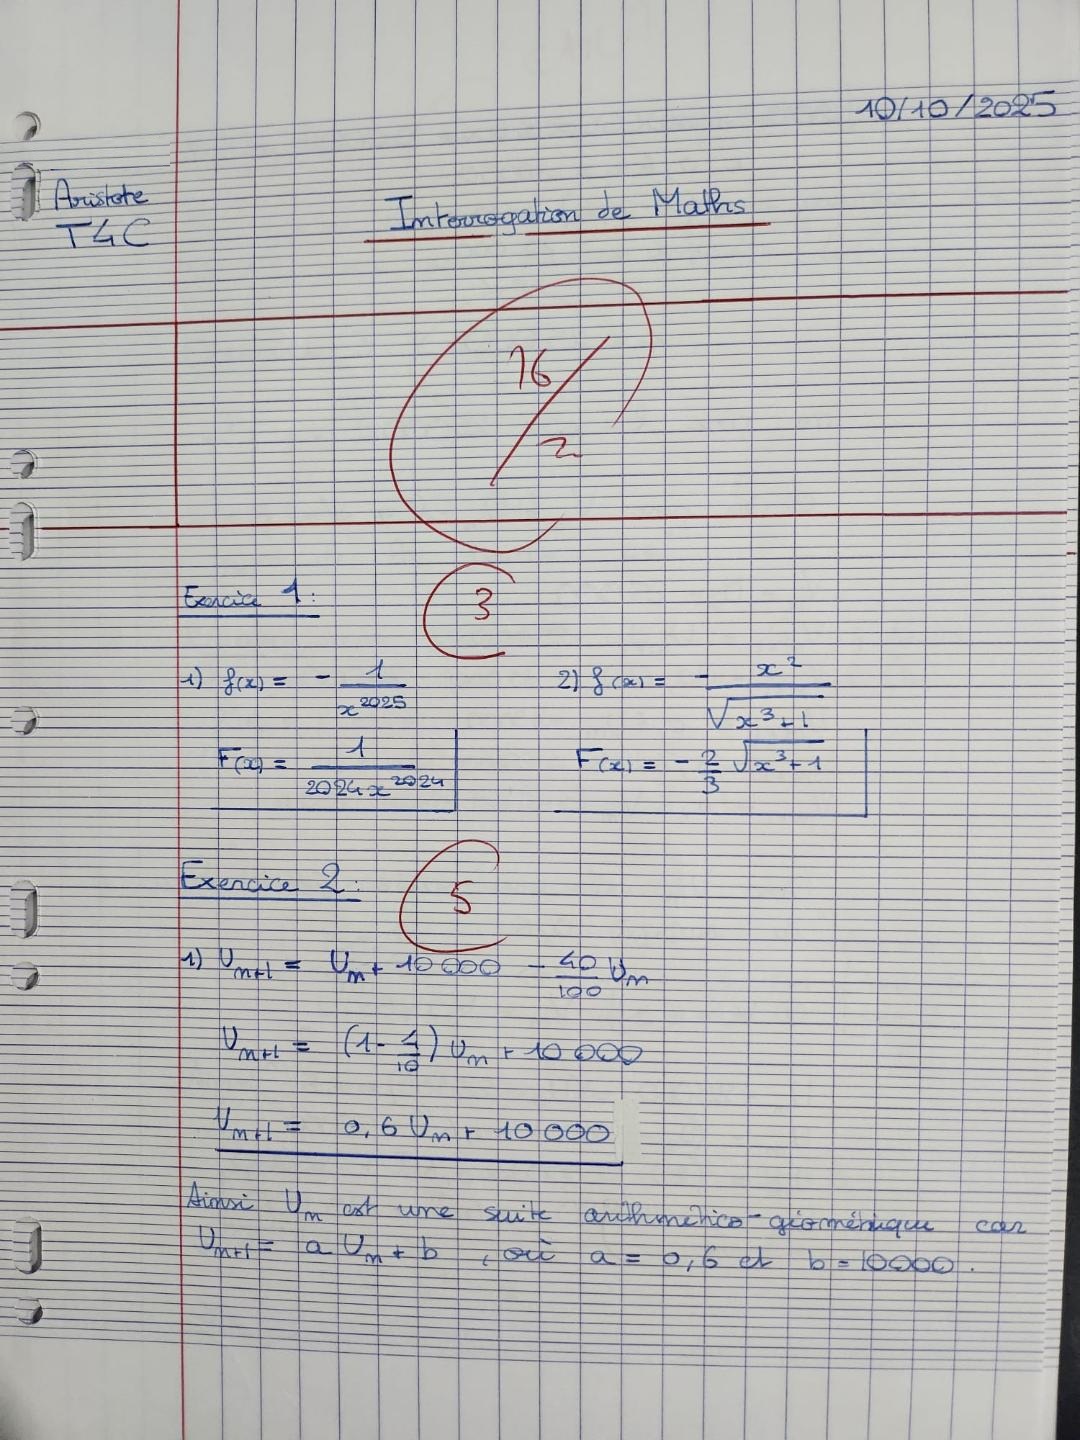 10/10/2025
Aristote
T4C
Interrogation de Maths
16/2
Exercice 1:
3
1) f(x) = - 1/x^2025
2) f(x) = - x²/√(x³+1)
F(x) = 1/(2024x^2024)
F(x) = - 2/3 √(x³+1)
Exercice 2:
5
1) U_n+1 = U_n + 10 000 - 40/100 U_n
U_n+1 = (1 - 4/10) U_n + 10 000
U_n+1 = 0,6 U_n + 10 000
Ainsi U_n est une suite arithmético-géométrique car
U_n+1 = a U_n + b , où a = 0,6 et b = 10000.